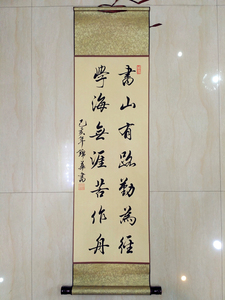 書山有路勤為徑
學海無涯苦作舟
己亥年維華書